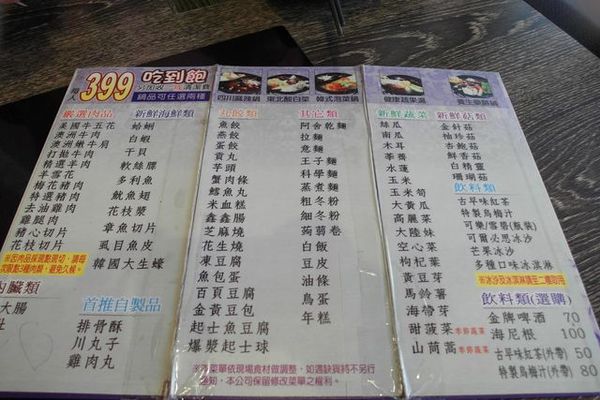 399
吃到飽
鍋品可任選兩種
嚴選肉品
美國牛五花
澳洲牛肉
澳洲嫩牛肩
打拋牛肉
精選羊肉
羊雪花
梅花豬肉
特選豬肉
去油雞肉
雞腿肉
豬心切片
花枝切片
新鮮海鮮類
蛤蜊
白蝦
干貝
軟絲膘
多利魚
魷魚翅
花枝漿
章魚切片
虱目魚皮
韓國大生蠔
內臟類
大腸
首推自製品
排骨酥
川丸子
雞肉丸
四川麻辣鍋
東北酸白菜
韓式泡菜鍋
健康蔬果湯
養生藥膳鍋
丸餃類
魚餃
燕餃
蛋餃
貢丸
芋頭
蟹肉條
鱈魚丸
米血糕
鑫鑫腸
芝麻燒
花生燒
凍豆腐
魚包蛋
百頁豆腐
金黃豆包
起士魚豆腐
爆漿起士球
其它類
阿舍乾麵
拉麵
意麵
王子麵
科學麵
蒸煮麵
粗冬粉
細冬粉
蒟蒻卷
白飯
豆皮
油條
鳥蛋
年糕
※菜單依現場食材做調整，如遇缺貨將不另行
通知，本公司保留修改菜單之權利。
新鮮蔬菜
絲瓜
南瓜
木耳
荸薺
水蓮
玉米
玉米筍
大黃瓜
高麗菜
大陸妹
空心菜
枸杞葉
黃豆芽
馬鈴薯
海帶芽
甜菠菜 季節蔬菜
山茼蒿 季節蔬菜
新鮮菇類
金針菇
柚珍菇
杏鮑菇
鮮香菇
白精靈
珊瑚菇
飲料類
古早味紅茶
特製烏梅汁
可樂/雪碧(瓶裝)
可爾必思冰沙
芒果冰沙
多種口味冰淇淋
飲料類(選購)
金牌啤酒 70
海尼根 100
古早味紅茶(外帶) 50
特製烏梅汁(外帶) 80